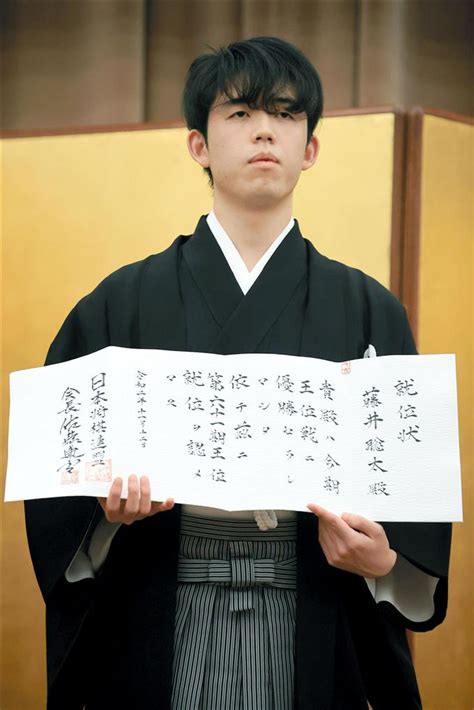 就位状
藤井聡太殿
貴殿ハ今期
王位戦ニ
優勝セラレ
マシタ
依テ茲ニ
第六十一期王位
就位ヲ認メ
マス
令和二年十一月十二日
日本将棋連盟
会長佐藤康光